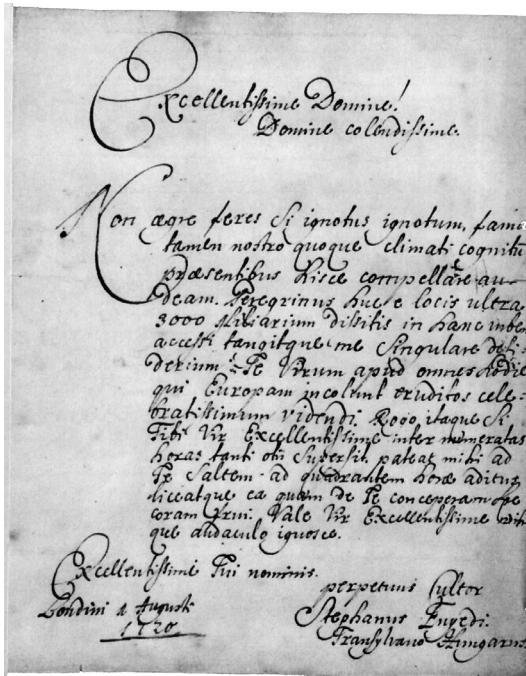 Excellentissime Domine!
Domine colendissime.
Non ægre feres si ignotus ignotum, fama
tamen nostro quoque climati cognitu
præsentibus hisce compellare au-
deam. Peregrinus huc e locis ultra
3000 Miliarium dissitis in hanc urbem
accessi tangitque me singulare desi-
derium Te Virum apud omnes hodie
qui Europam incolunt eruditos cele-
bratissimum videndi. Rogo itaque si
Tibi Vir Excellentissime inter numeratas
horas tanti otii supersit, pateat mihi ad
Te saltem ad quadrantem horæ aditus
liceatque ea quam de Te conceperam spe
coram frui. Vale Vir Excellentissime
que audaculo ignosce.
Excellentissime Tui nominis.
perpetuus Cultor
Londini 1 Augusti
Stephanus Enyedi.
1720
Transylvano Hungarus